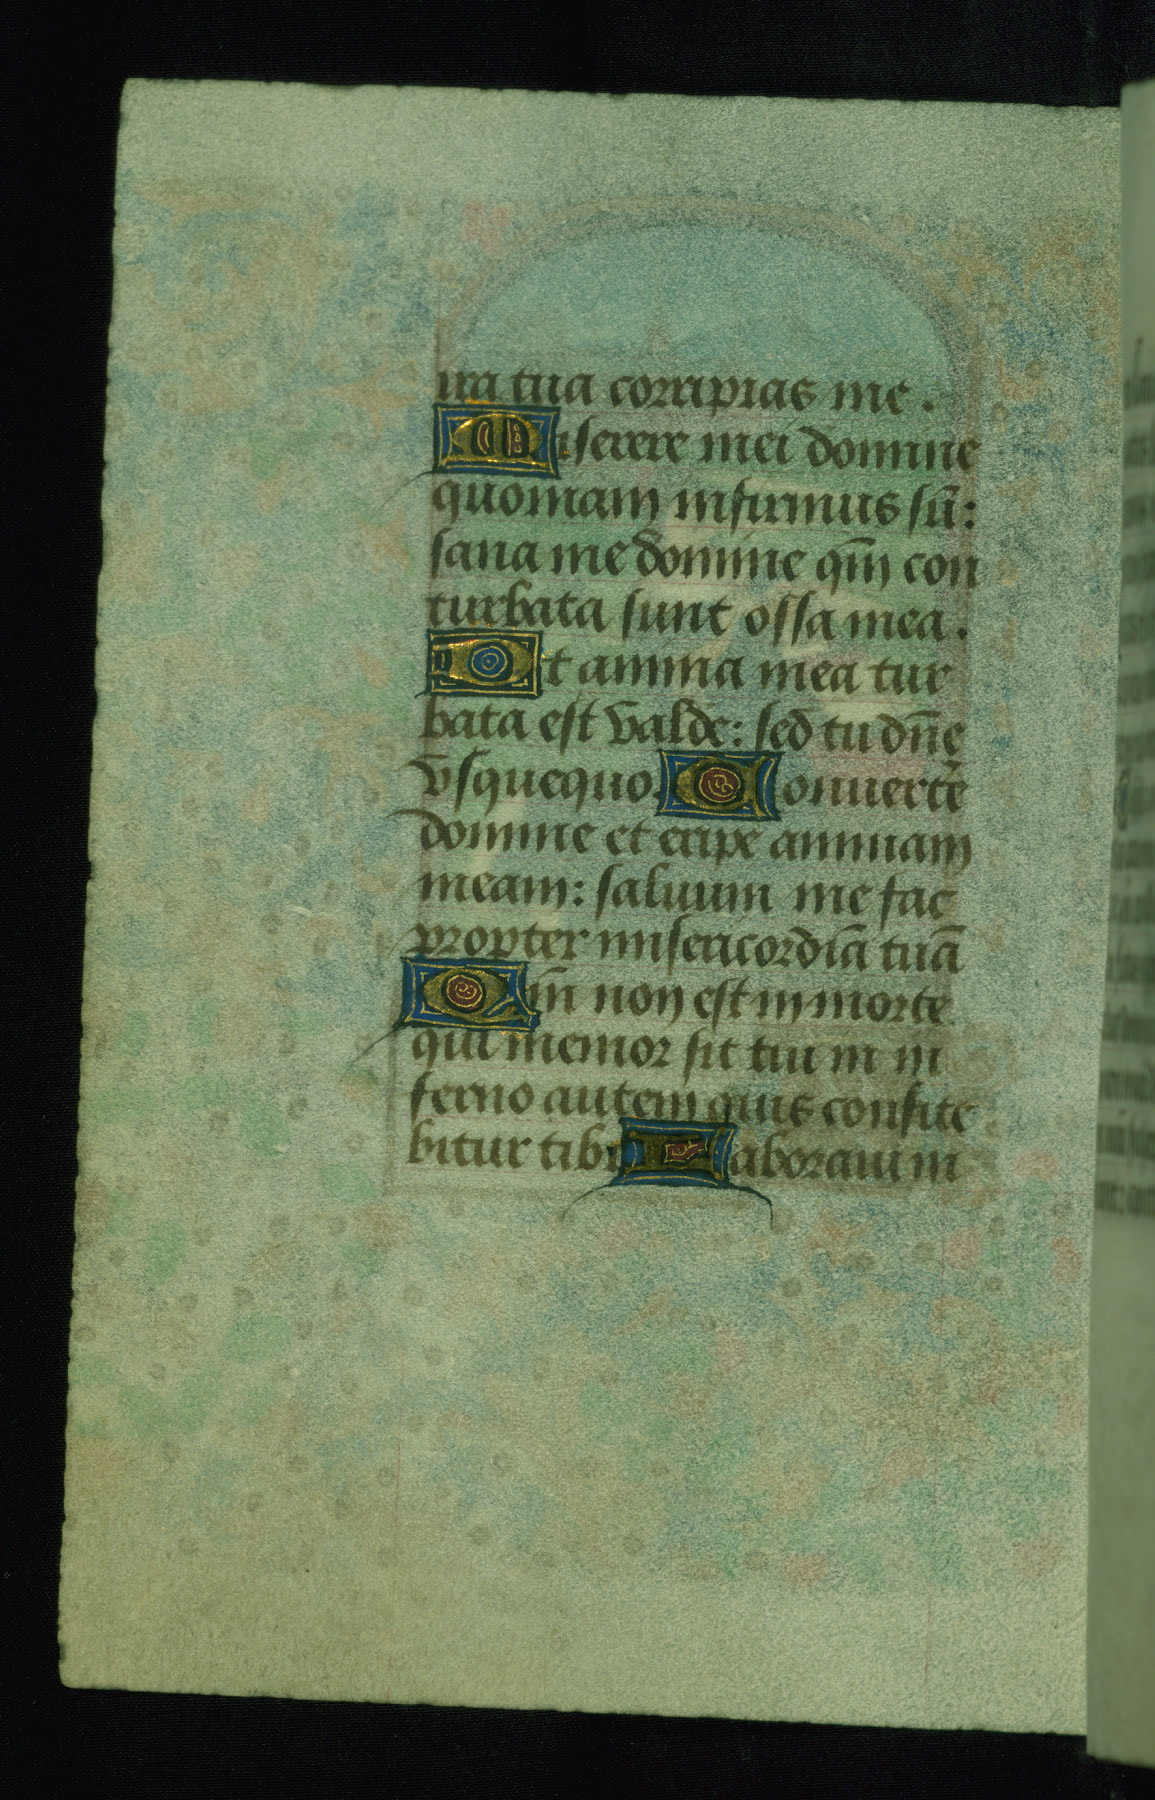 ira tua corripias me.
Miserere mei domine
quoniam infirmus sū:
sana me domine qm̄ con
turbata sunt ossa mea.
Et anima mea tur
bata est valde: sed tu dn̄e
vsquequo. Conuerte
domine et eripe animam
meam: saluum me fac
propter misericordiā tuā
Qm̄ non est in morte
qui memor sit tui in in
ferno autem quis confite
bitur tibi Laboraui in